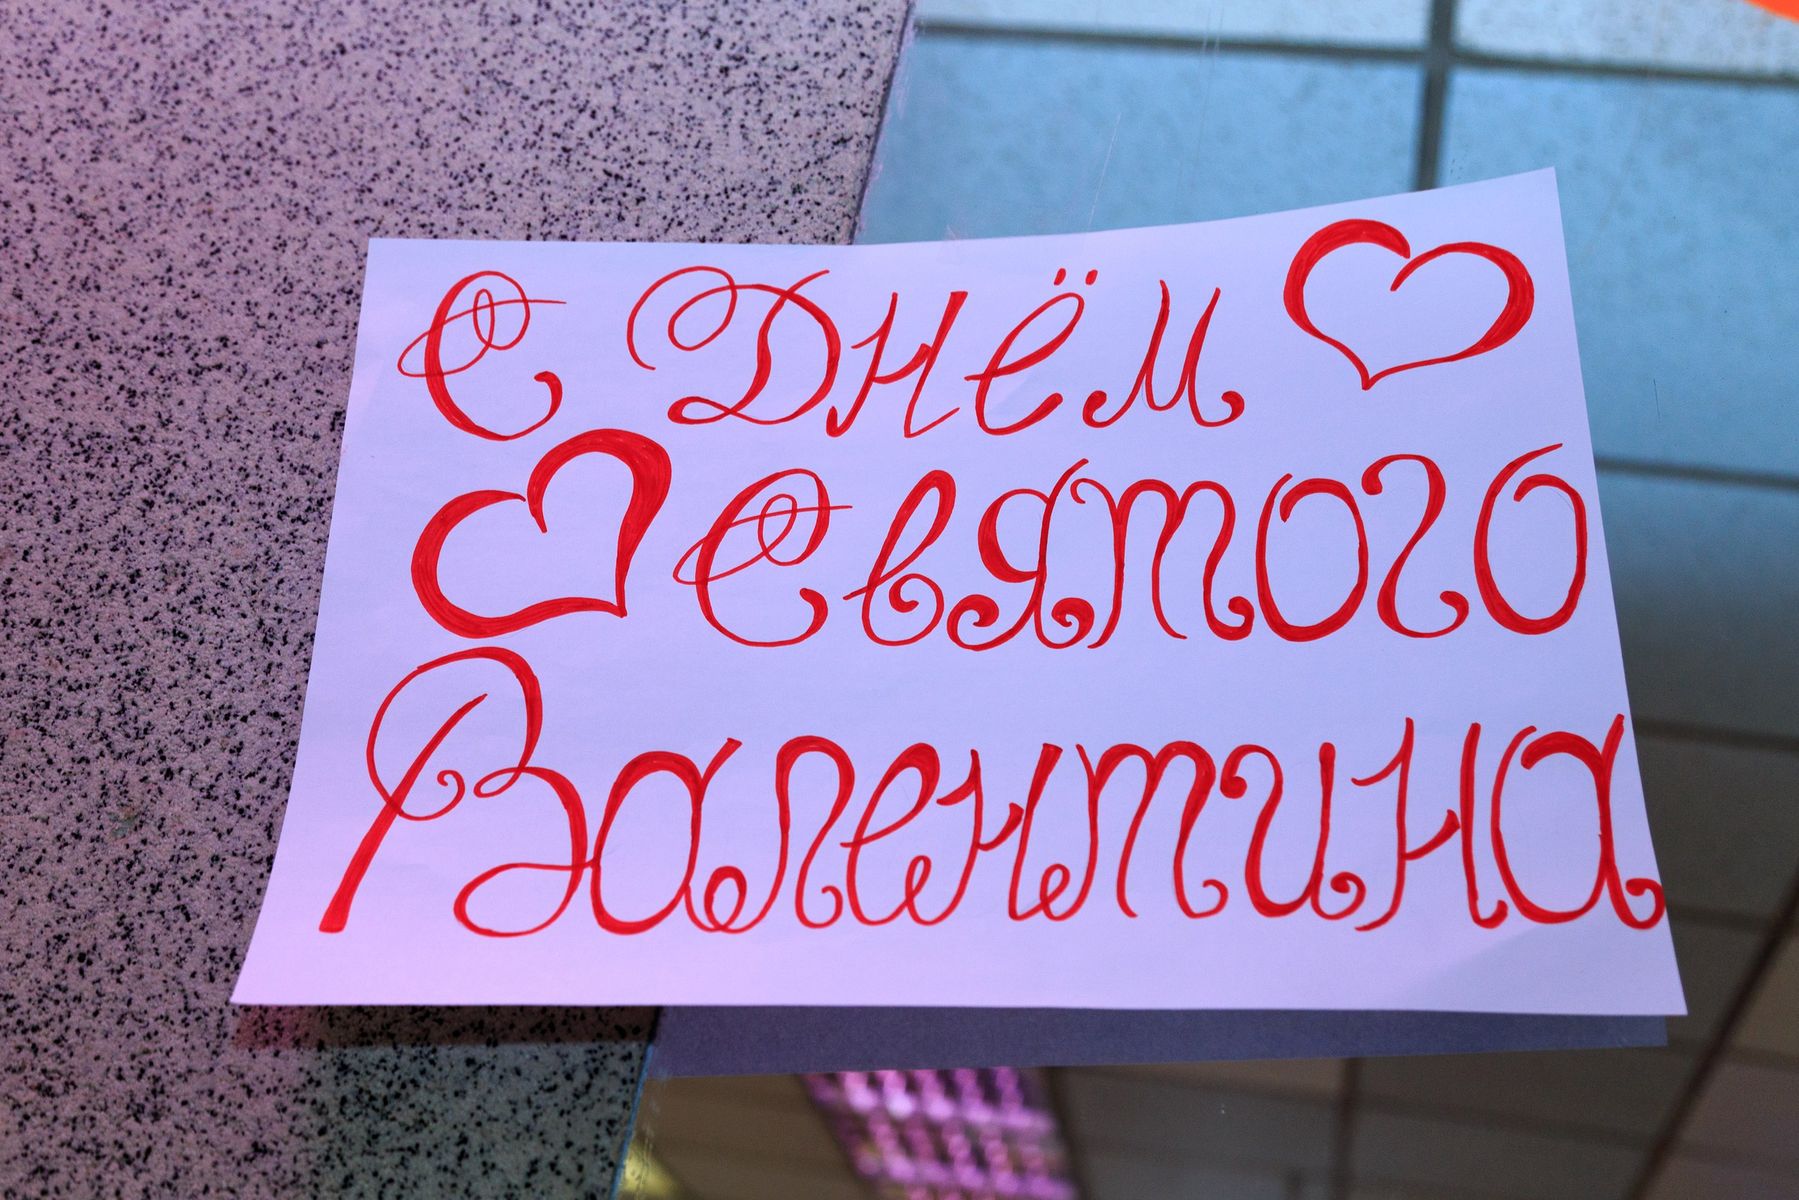 С Днём
Святого
Валентина